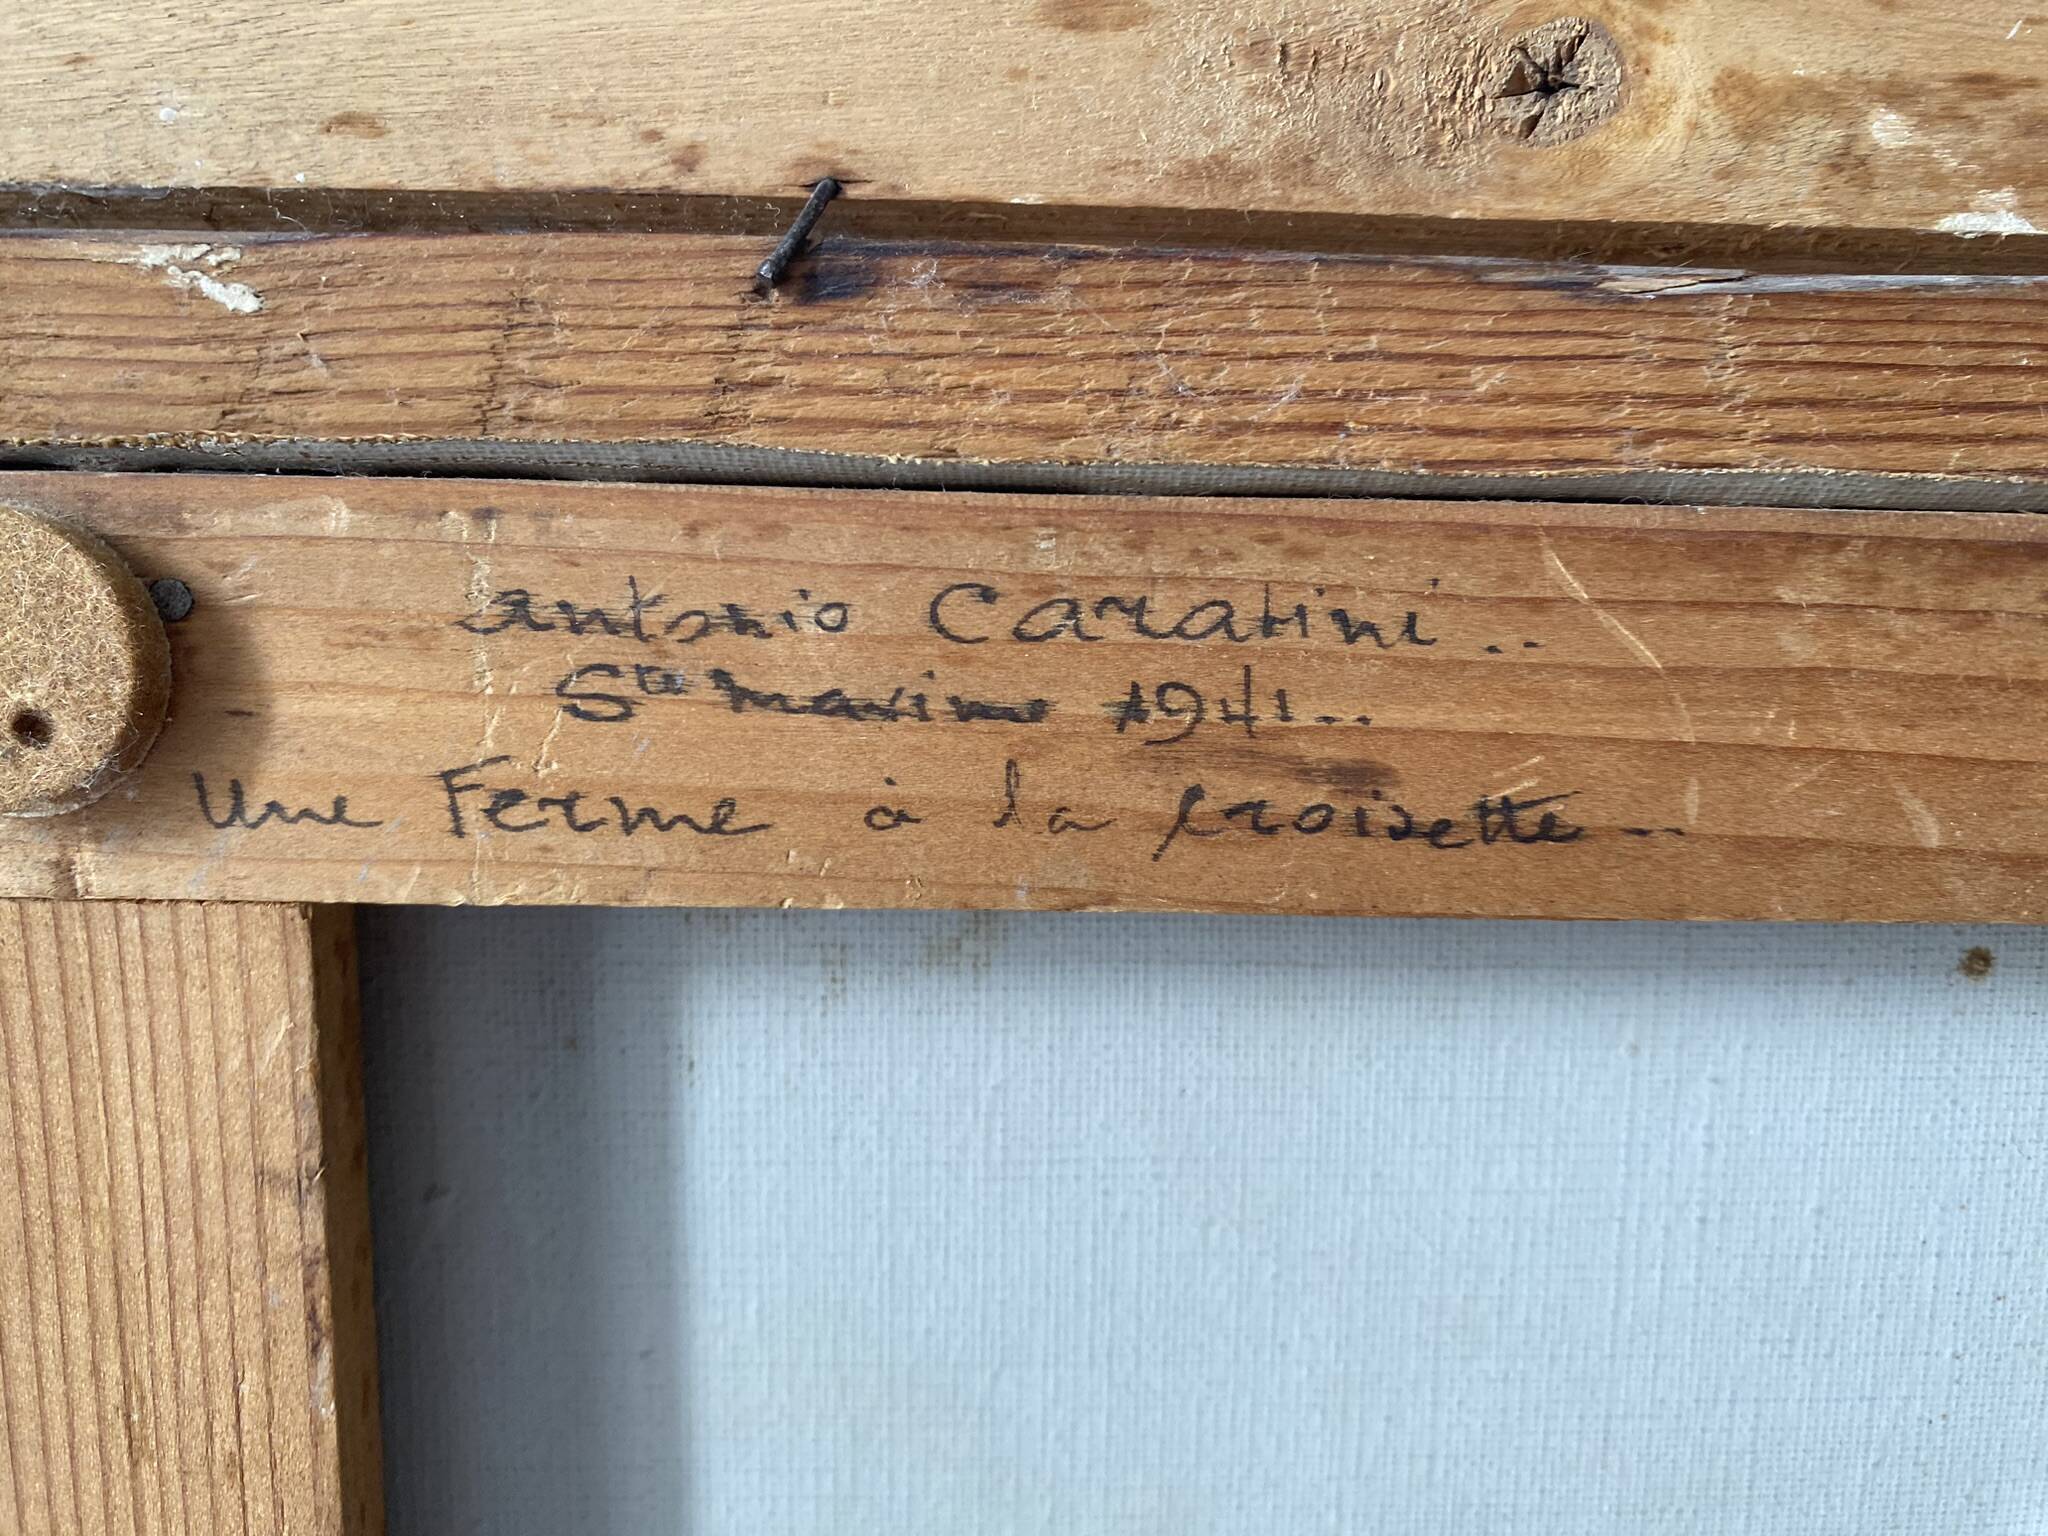 antonio Caratini..
Ste maxime 1941...
Une Ferme à la croisette...